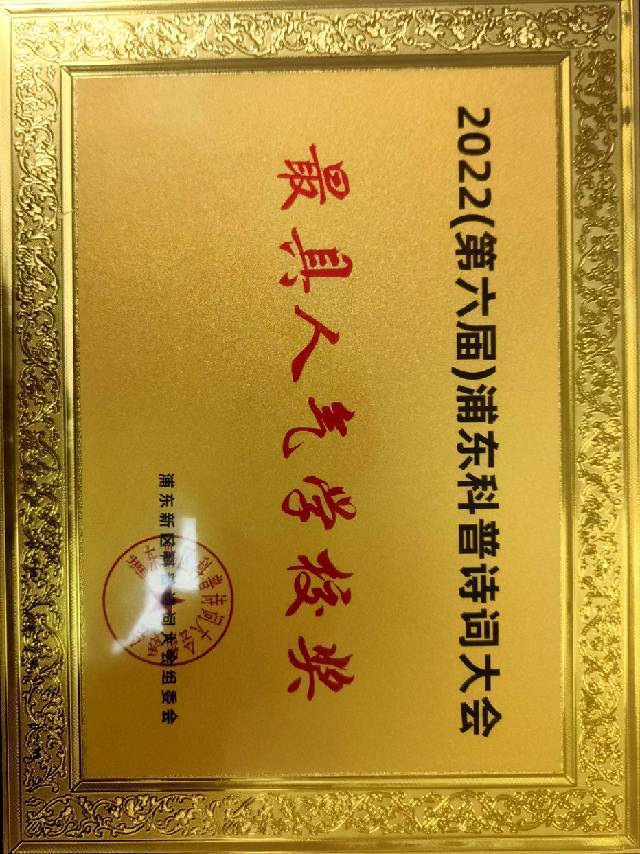 2022(第六届)浦东科普诗词大会
最具人气学校奖
浦东新区科普诗词大会组委会